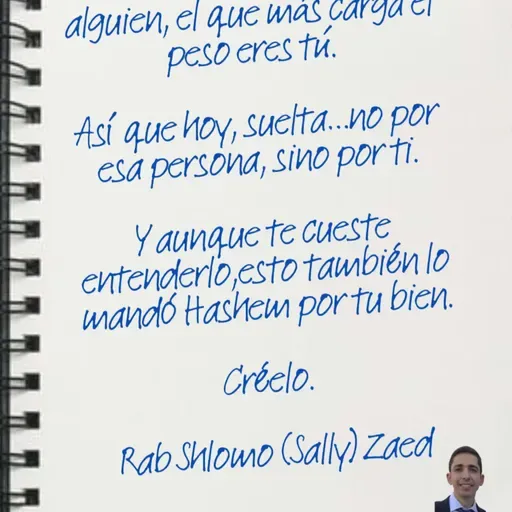 alguien, el que más carga el
peso eres tú.
Así que hoy, suelta...no por
esa persona, sino por ti.
Y aunque te cueste
entenderlo,esto también lo
mandó Hashem por tu bien.
Créelo.
Rab Shlomo (Sally) Zaed